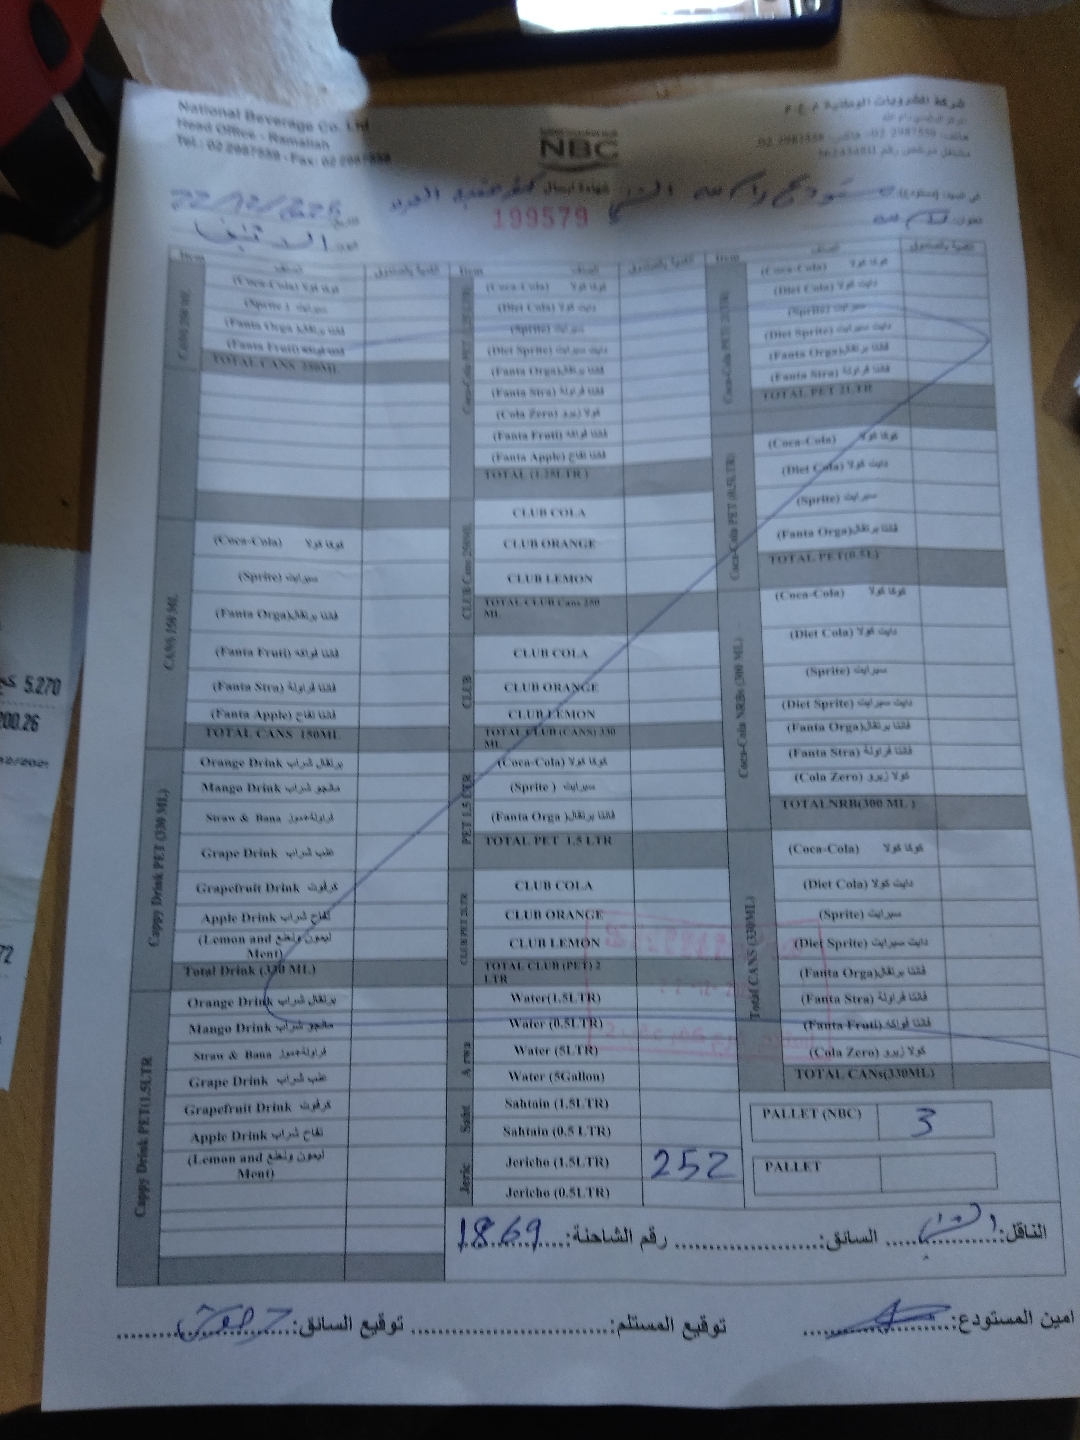 National Beverage Co. Ltd
Head Office - Ramallah
Tel.: 02 2987559 - Fax: 02 2987558
شركة المشروبات الوطنية م.ع.م
NBC
شهادة ارسال
199579
Item الصنف الكمية بالصندوق
CANS 250 ML
(Coca-Cola) كوكا كولا
(Sprite) سبرايت
(Fanta Orga) فانتا برتقال
(Fanta Fruti) فانتا فواكه
TOTAL CANS 250ML
CANS 150 ML
(Coca-Cola) كوكا كولا
(Sprite) سبرايت
(Fanta Orga) فانتا برتقال
(Fanta Fruti) فانتا فواكه
(Fanta Stra) فانتا فراولة
(Fanta Apple) فانتا تفاح
TOTAL CANS 150ML
Cappy Drink PET (330 ML)
Orange Drink برتقال شراب
Mango Drink مانجو شراب
Straw & Bana فراولة موز
Grape Drink عنب شراب
Grapefruit Drink كرفوت
Apple Drink تفاح شراب
(Lemon and Ment) ليمون ونعنع
Total Drink (330 ML)
Cappy Drink PET(1.5LTR
Orange Drink برتقال شراب
Mango Drink مانجو شراب
Straw & Bana فراولة موز
Grape Drink عنب شراب
Grapefruit Drink كرفوت
Apple Drink تفاح شراب
(Lemon and Ment) ليمون ونعنع
Item الصنف الكمية بالصندوق
(Coca-Cola) كوكا كولا
(Diet Cola) دايت كولا
(Sprite) سبرايت
(Diet Sprite) دايت سبرايت
(Fanta Orga) فانتا برتقال
(Fanta Stra) فانتا فراولة
(Cola Zero) كولا زيرو
(Fanta Fruti) فانتا فواكه
(Fanta Apple) فانتا تفاح
TOTAL (1.25LTR)
CLUB Cans 250ML
CLUB COLA
CLUB ORANGE
CLUB LEMON
TOTAL CLUB Cans 250 ML
CLUB
CLUB COLA
CLUB ORANGE
CLUB LEMON
TOTAL CLUB (CANS) 330 ML
PET 1.5 LTR
(Coca-Cola) كوكا كولا
(Sprite) سبرايت
(Fanta Orga) فانتا برتقال
TOTAL PET 1.5 LTR
CLUB PET 2LTR
CLUB COLA
CLUB ORANGE
CLUB LEMON
TOTAL CLUB (PET) 2 LTR
Arwa
Water(1.5LTR)
Water (0.5LTR)
Water (5LTR)
Water (5Gallon)
Saht
Sahtain (1.5LTR)
Sahtain (0.5 LTR)
Jeric
Jericho (1.5LTR) 252
Jericho (0.5LTR)
Item الصنف الكمية بالصندوق
(Coca-Cola) كوكا كولا
(Diet Cola) دايت كولا
(Sprite)
(Diet Sprite) دايت سبرايت
(Fanta Orga) فانتا برتقال
(Fanta Stra) فانتا فراولة
TOTAL PET 2LTR
Coca-Cola PET (0.5LTR)
(Coca-Cola) كوكا كولا
(Diet Cola) دايت كولا
(Sprite) سبرايت
(Fanta Orga) فانتا برتقال
TOTAL PET(0.5L)
Coca-Cola NRBs (300 ML)
(Coca-Cola) كوكا كولا
(Diet Cola) دايت كولا
(Sprite) سبرايت
(Diet Sprite) دايت سبرايت
(Fanta Orga) فانتا برتقال
(Fanta Stra) فانتا فراولة
(Cola Zero) كولا زيرو
TOTALNRB(300 ML )
Total CANS (330ML)
(Coca-Cola) كوكا كولا
(Diet Cola) دايت كولا
(Sprite) سبرايت
(Diet Sprite) دايت سبرايت
(Fanta Orga) فانتا برتقال
(Fanta Stra) فانتا فراولة
(Fanta Fruti) فانتا فواكه
(Cola Zero) كولا زيرو
TOTAL CANs(330ML)
PALLET (NBC) 3
PALLET
الناقل: السائق: رقم الشاحنة: 1869
امين المستودع: توقيع المستلم: توقيع السائق:
5.270
200.26
72